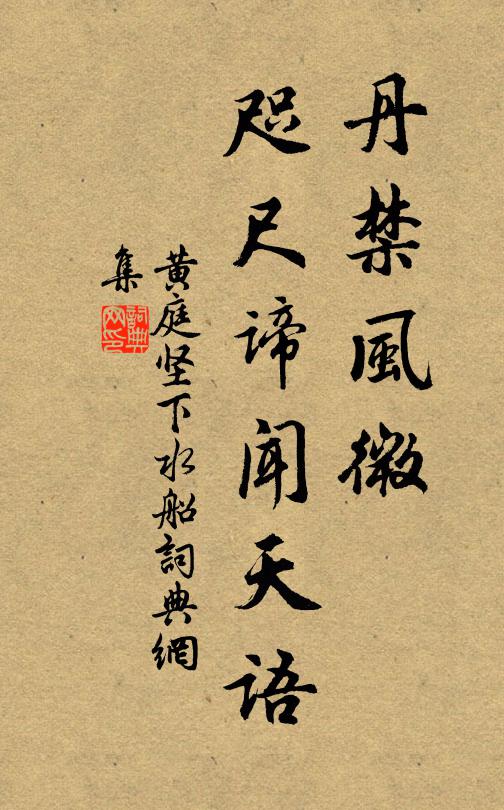 丹禁風微
咫尺諦聞天語
黄庭坚下水船詞典網
集
詞典
网印